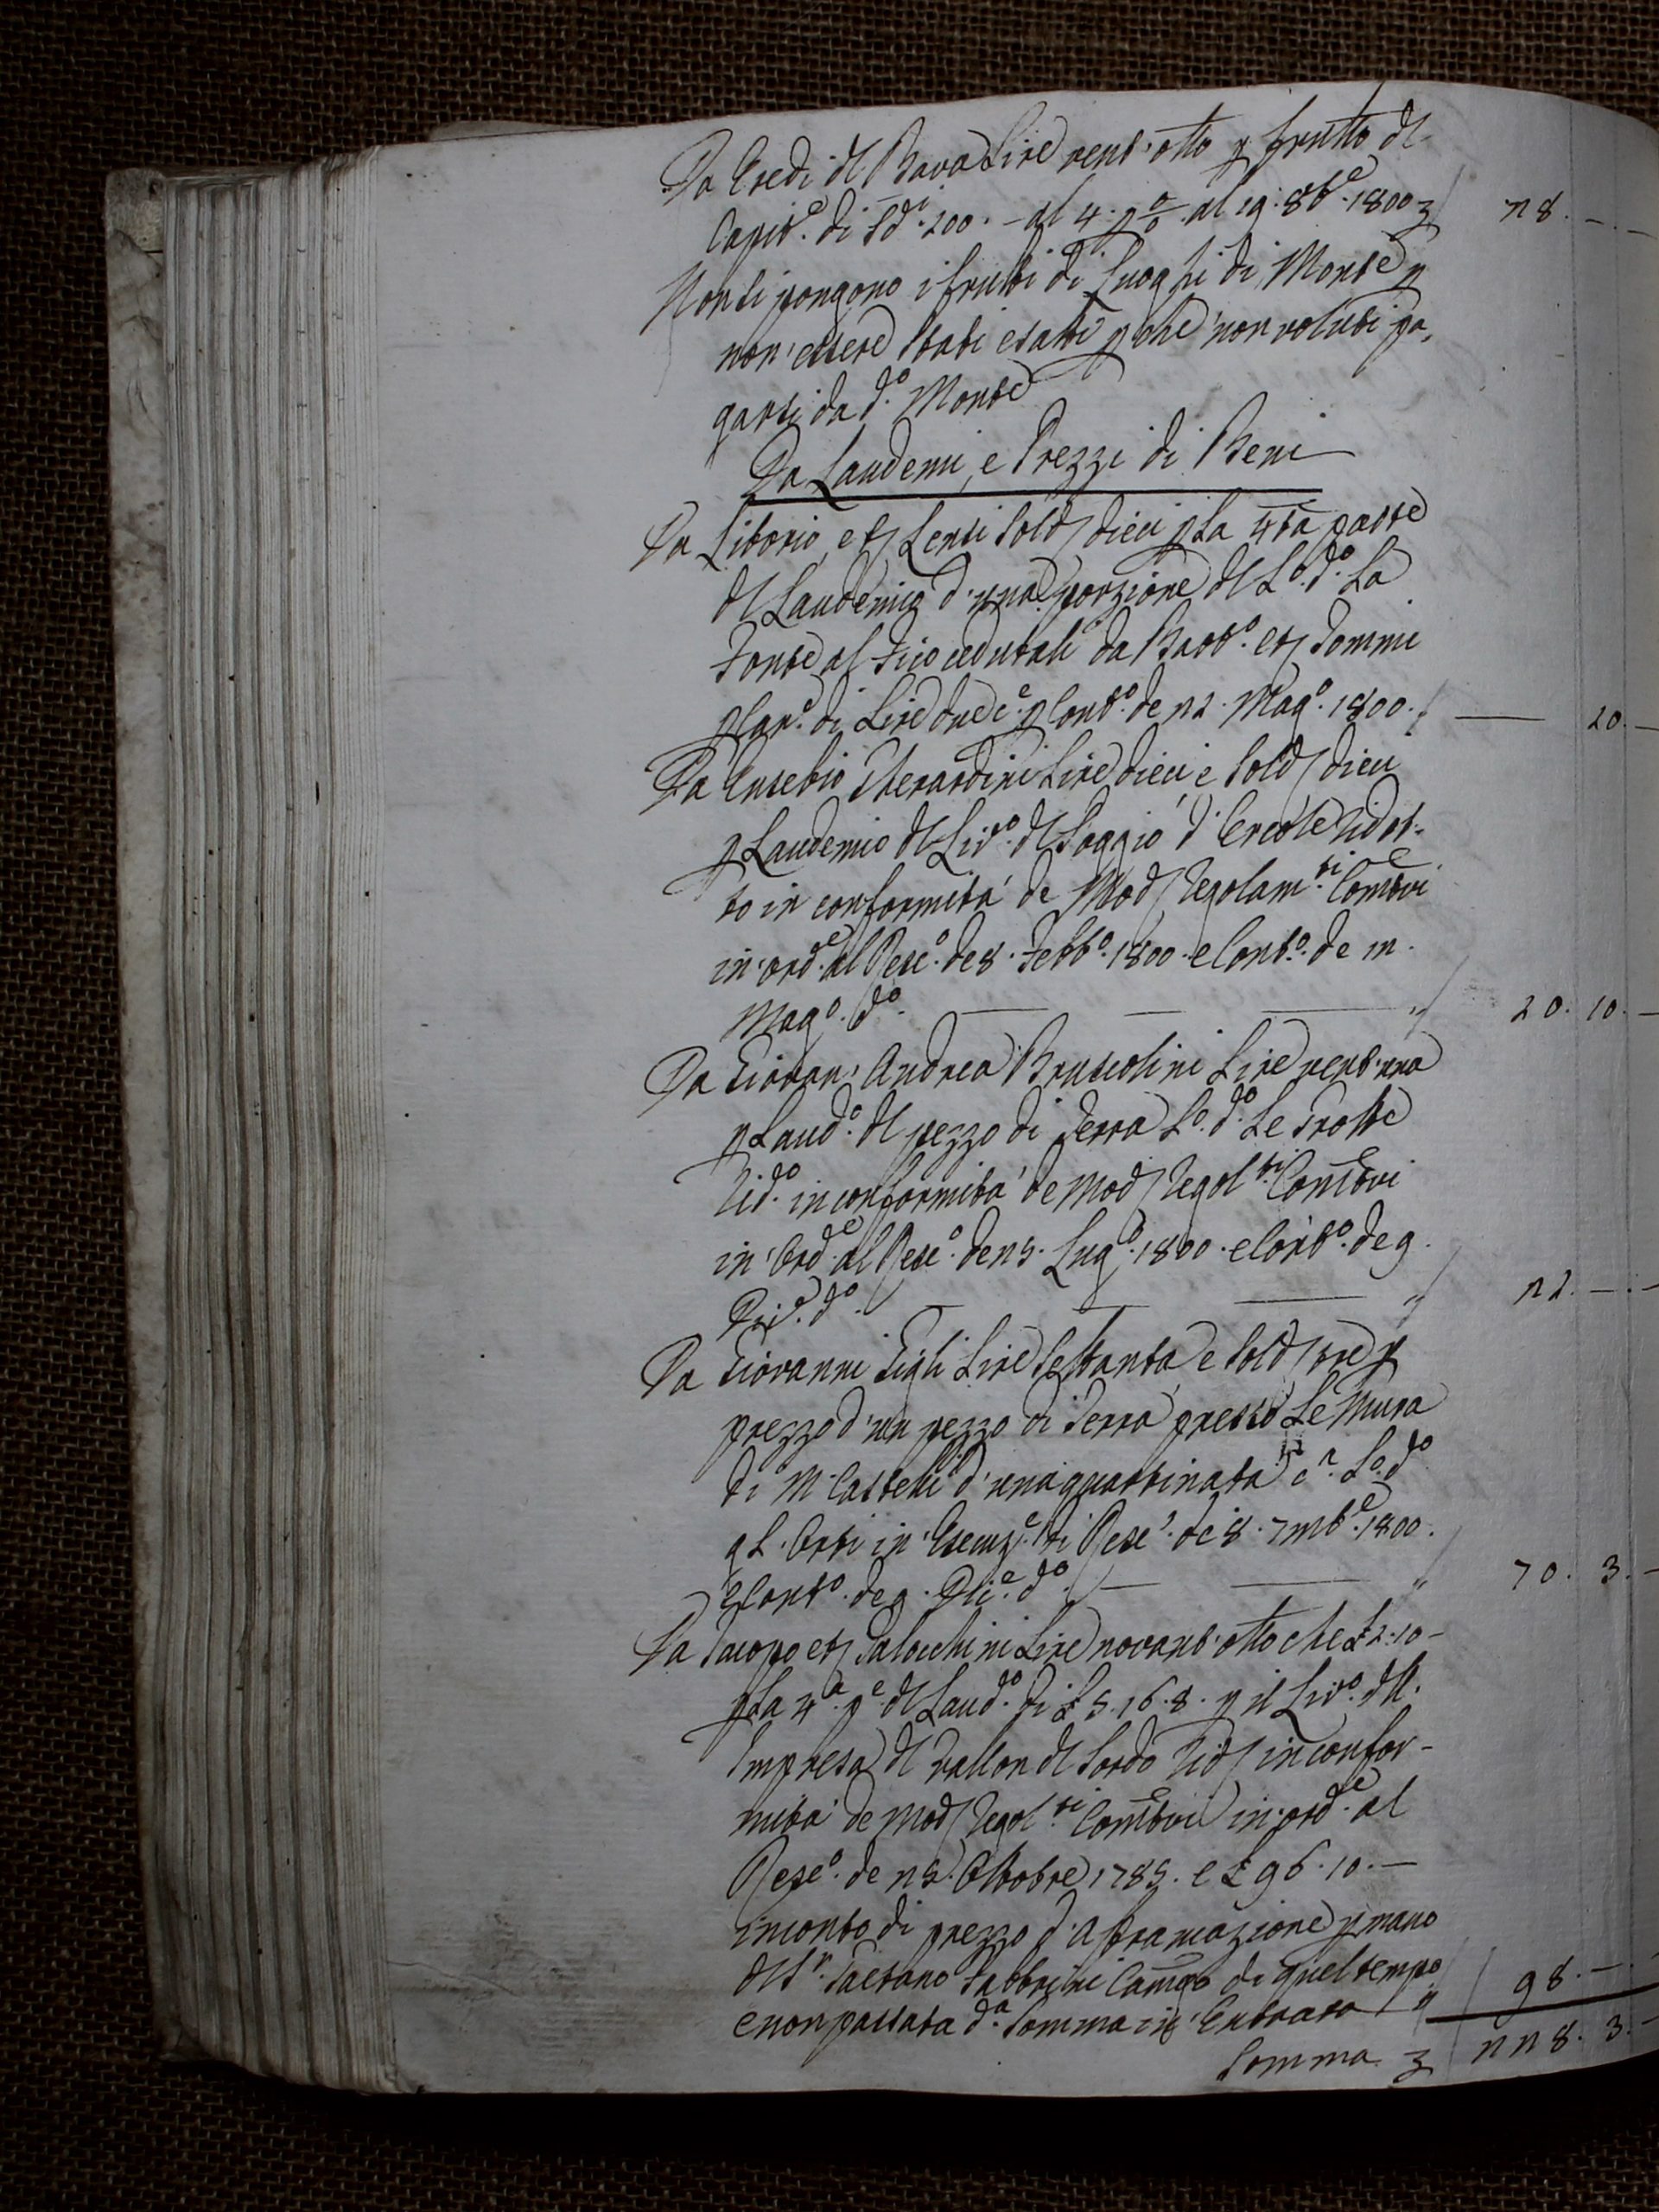 Da Eredi dl Bava Lire vent'otto p frutto dl
Capit.e di Sdi. 200. – al 4. p o/o al 19. 8b.e 1800 z 28. – . –
Non si pongono i frutti di Luoghi di Monte p
non essere stati esatti p che non voluti pa,
garsi da d.o Monte
Da Laudemi, e Prezzi di Beni
Da Liborio, e Lensi Sold dieci p La 4ta parte
dl Laudemio d'una porzione dl L.o d.o La
Fonte al Fico cedutali da Bart.o e Tommi
p Can.e di Lire due c.e p Cont.o de 22. Mag.o 1800. — 10. –
Da Eusebio Gherardini Lire dieci e Sold dieci
p Laudemio dl Liv.o dl Poggio d'Ercole Ridot-
to in conformità de Mod Regolam.ti Com̃tivi
in ord.e al Resc.o de 8. Febb.o 1800. e Cont.o de 22.
Mag.o d.o — — — " 10. 10. –
Da Giovan' Andrea Bruscolini Lire vent'una
p Laud.o dl pezzo di Terra L.o d.o Le Grotte
Rid.o in conformità de Mod Regol.ti Com̃tivi
in Ord.e al Resc.o de 25. Lug.o 1800. e Cont.o de 9.
Dic.e d.o — — — " 21. – . –
Da Giovanni Gigli Lire Settanta e Sold tre p
prezzo d'un pezzo di Terra presso Le Mura
di M. Castelli d'una quartinata c.a L.o d.o
gl'Orti in Esecuz.e di Resc.o de 8. 7mb.e 1800.
e Cont.o de 9. Dic.e d.o — — " 70. 3. –
Da Jacopo e Salocchini Lire novant'otto che £ 1: 10 –
p La 4.a p.e dl Laud.o di £ 5. 16. 8. p il Liv.o dll'
Impresa dl Vallon dl Sordo Rid in confor-
mità de Mod Regol.ti Com̃tivi in ord.e al
Resc.o de 25. Ottobre 1785. e £ 96. 10. –
in conto di prezzo d'Affrancazione p mano
dl S.r Gaetano Fabbrini Camgo di quel tempo
e non passata d.a Somma in Entrata " 98. – . –
Somma z 228. 3. –